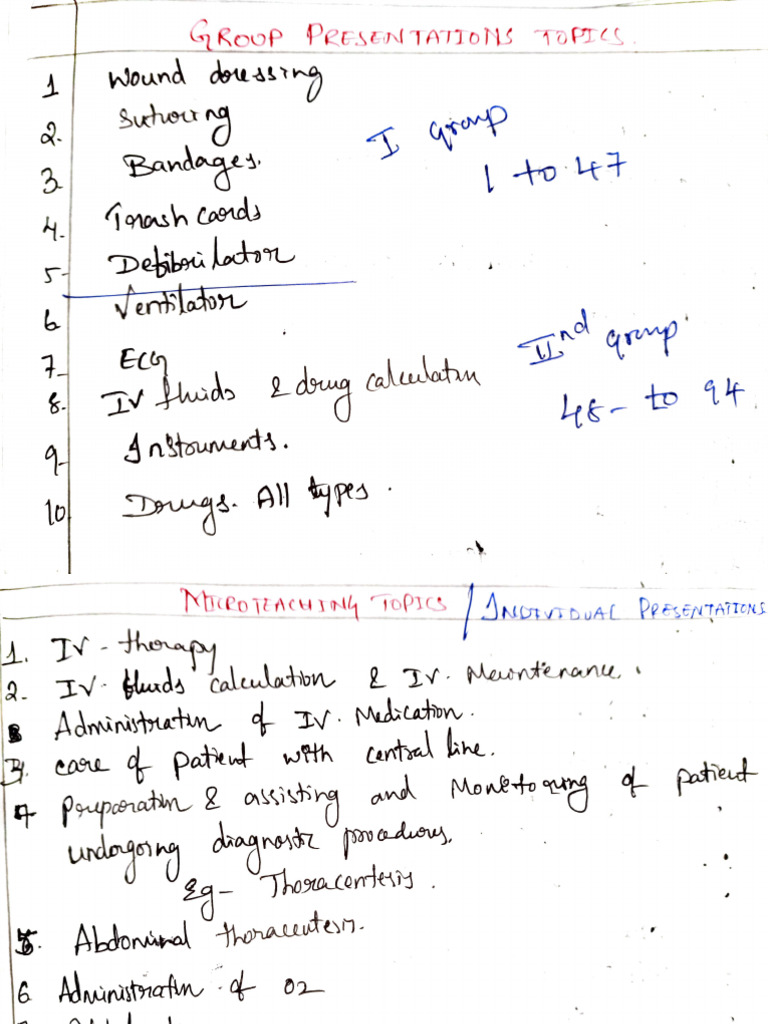 GROUP PRESENTATIONS TOPICS.
1 Wound dressing
2. Suturing
3. Bandages.
I group
1 to 47
4. Trash cards
5- Defibrilator
6 Ventilator
7. ECG
IInd group
8. IV fluids & drug calculatn
48- to 94
9. Instruments.
10. Drugs. All types.
MICROTEACHING TOPICS / INDIVIDUAL PRESENTATIONS
1. IV-therapy
2. IV. fluids calculation & IV. Maintenance.
Administratin of IV. Medication.
3. care of patient with central line.
4 Preparatin & assisting and Monetoring of patient
undergoing diagnostic procedures.
Eg- Thoracentesis.
5. Abdominal thoracentesis.
6 Administratin of O2